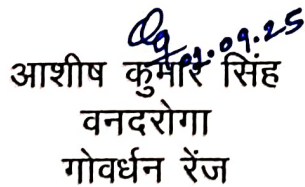 02.09.25
आशीष कुमार सिंह
वनदरोगा
गोवर्धन रेंज